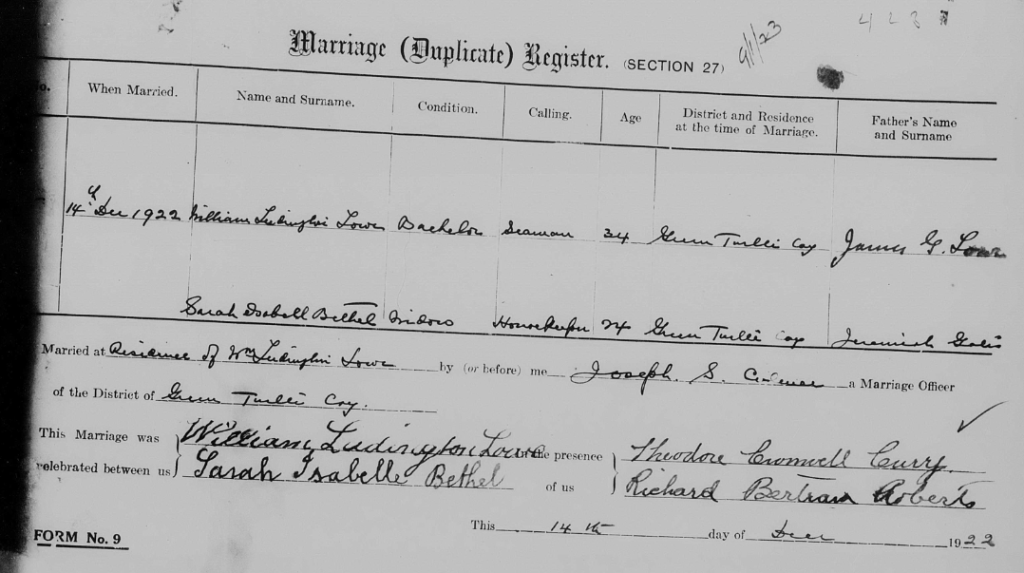 4 2 8
9/1/23
Marriage (Duplicate) Register. (SECTION 27)
o. When Married. Name and Surname. Condition. Calling. Age District and Residence at the time of Marriage. Father's Name and Surname
14th Dec 1922 William Ludington Lowe Bachelor Seaman 34 Green Turtle Cay James G. Lowe
Sarah Isabell Bethel Widow Housekeeper 24 Green Turtle Cay Jeremiah
Married at Residence of Wm Ludington Lowe by (or before) me Joseph. S. a Marriage Officer
of the District of Green Turtle Cay.
This Marriage was William Ludington Lowe the presence Theodore Cromwell Curry.
celebrated between us Sarah Isabelle Bethel of us Richard Bertram Roberts
This 14th day of Dec 1922
FORM No. 9